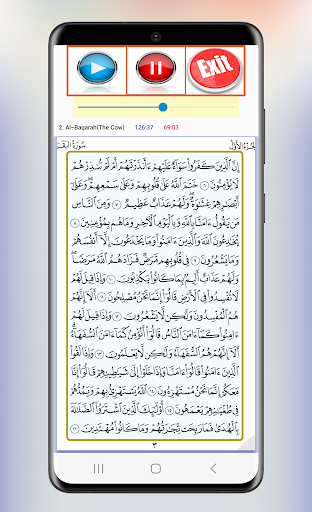 Exit
2. Al-Baqarah(The Cow) 126:37 69:03
سُورَةُ البَقَرَةِ الجُزْءُ الأَوَّلُ
إِنَّ ٱلَّذِينَ كَفَرُوا۟ سَوَآءٌ عَلَيْهِمْ ءَأَنذَرْتَهُمْ أَمْ لَمْ تُنذِرْهُمْ
لَا يُؤْمِنُونَ ٦ خَتَمَ ٱللَّهُ عَلَىٰ قُلُوبِهِمْ وَعَلَىٰ سَمْعِهِمْ وَعَلَىٰٓ
أَبْصَٰرِهِمْ غِشَٰوَةٌ وَلَهُمْ عَذَابٌ عَظِيمٌ ٧ وَمِنَ ٱلنَّاسِ
مَن يَقُولُ ءَامَنَّا بِٱللَّهِ وَبِٱلْيَوْمِ ٱلْءَاخِرِ وَمَا هُم بِمُؤْمِنِينَ ٨
يُخَٰدِعُونَ ٱللَّهَ وَٱلَّذِينَ ءَامَنُوا۟ وَمَا يَخْدَعُونَ إِلَّآ أَنفُسَهُمْ
وَمَا يَشْعُرُونَ ٩ فِى قُلُوبِهِم مَّرَضٌ فَزَادَهُمُ ٱللَّهُ مَرَضًا
وَلَهُمْ عَذَابٌ أَلِيمٌۢ بِمَا كَانُوا۟ يَكْذِبُونَ ١٠ وَإِذَا قِيلَ لَهُمْ
لَا تُفْسِدُوا۟ فِى ٱلْأَرْضِ قَالُوٓا۟ إِنَّمَا نَحْنُ مُصْلِحُونَ ١١ أَلَآ إِنَّهُمْ
هُمُ ٱلْمُفْسِدُونَ وَلَٰكِن لَّا يَشْعُرُونَ ١٢ وَإِذَا قِيلَ لَهُمْ
ءَامِنُوا۟ كَمَآ ءَامَنَ ٱلنَّاسُ قَالُوٓا۟ أَنُؤْمِنُ كَمَآ ءَامَنَ ٱلسُّفَهَآءُ
أَلَآ إِنَّهُمْ هُمُ ٱلسُّفَهَآءُ وَلَٰكِن لَّا يَعْلَمُونَ ١٣ وَإِذَا لَقُوا۟
ٱلَّذِينَ ءَامَنُوا۟ قَالُوٓا۟ ءَامَنَّا وَإِذَا خَلَوْا۟ إِلَىٰ شَيَٰطِينِهِمْ قَالُوٓا۟ إِنَّا
مَعَكُمْ إِنَّمَا نَحْنُ مُسْتَهْزِءُونَ ١٤ ٱللَّهُ يَسْتَهْزِئُ بِهِمْ وَيَمُدُّهُمْ
فِى طُغْيَٰنِهِمْ يَعْمَهُونَ ١٥ أُو۟لَٰٓئِكَ ٱلَّذِينَ ٱشْتَرَوُا۟ ٱلضَّلَٰلَةَ
بِٱلْهُدَىٰ فَمَا رَبِحَت تِّجَٰرَتُهُمْ وَمَا كَانُوا۟ مُهْتَدِينَ ١٦
٣